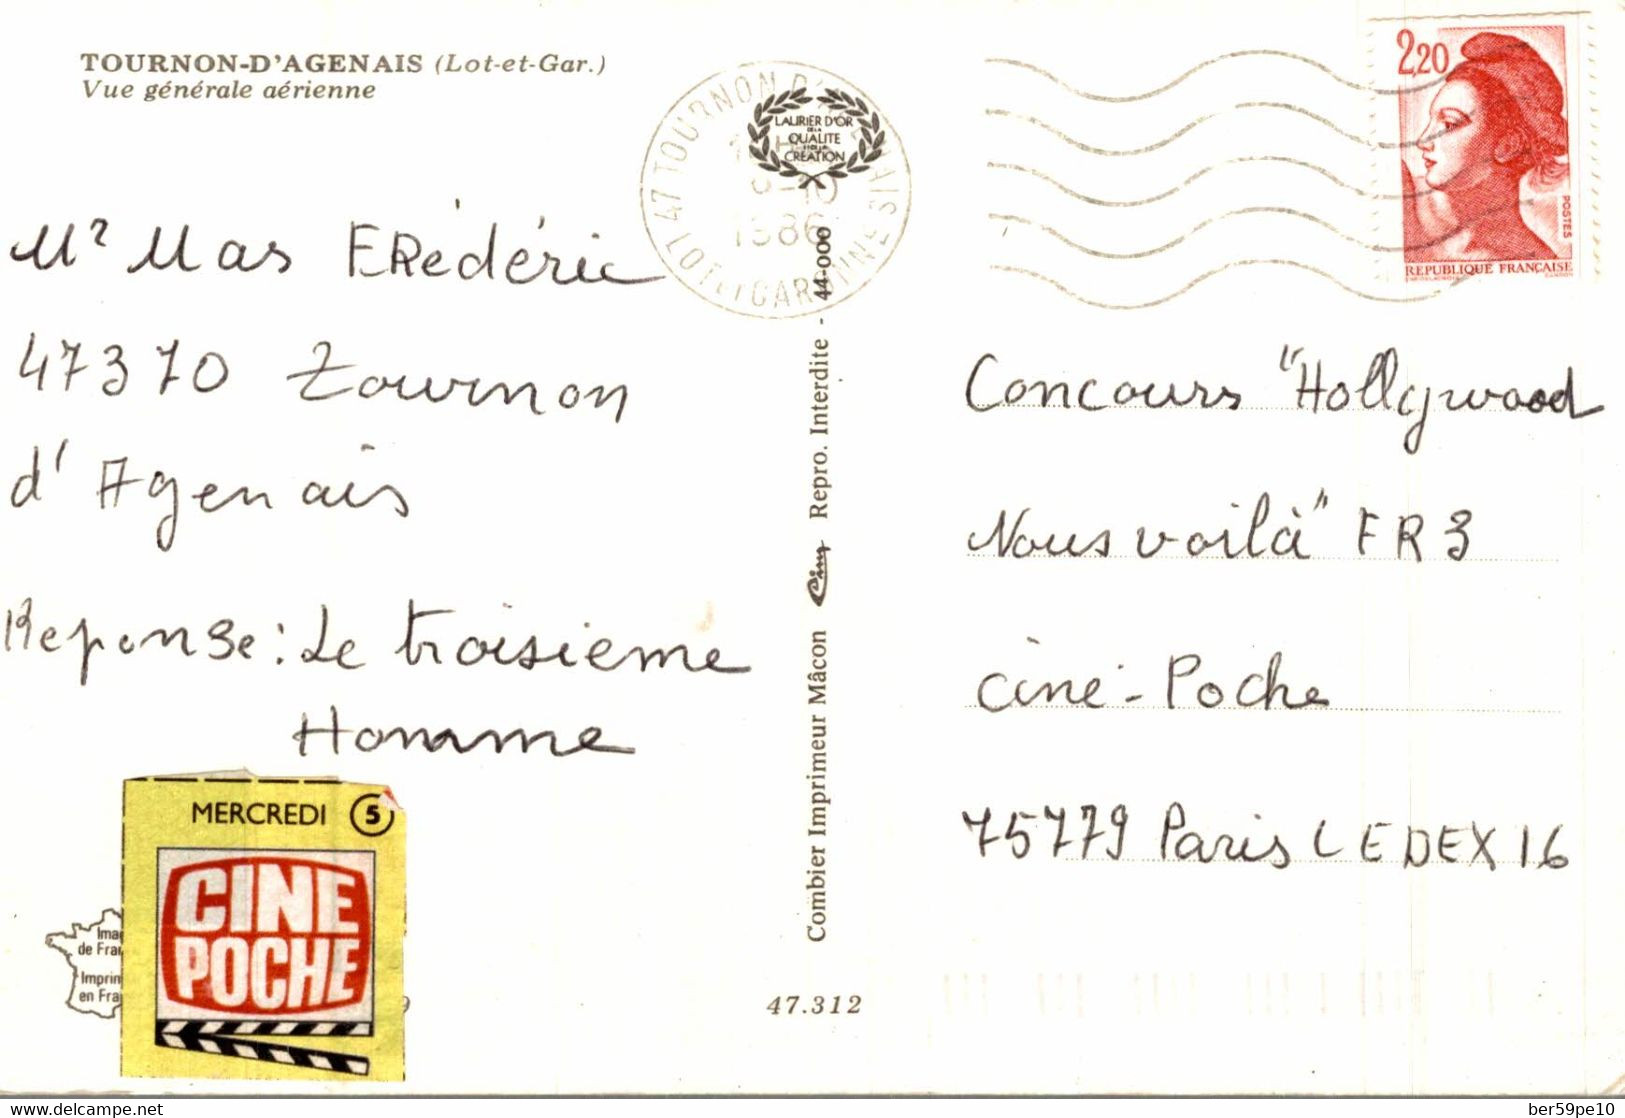 TOURNON-D'AGENAIS (Lot-et-Gar.)
Vue générale aérienne
47 TOURNON D' AIS
9-10
1986
LOT ET GARONNE
LAURIER D'OR
DE LA
QUALITE
ET DE LA
CREATION
2,20
POSTES
REPUBLIQUE FRANÇAISE
Mr Mas FRédéric
47370 Tournon
d'Agenais
Reponse: Le troisieme
Homme
MERCREDI 5
CINE
POCHE
Ima
de Fra
Imprim
en Fra
9
Combier Imprimeur Mâcon Cim Repro. Interdite - 44-0000
47.312
Concours "Hollywood
Nous voilà" FR3
Ciné-Poche
75779 Paris CEDEX 16
delcampe.net
ber59pe10